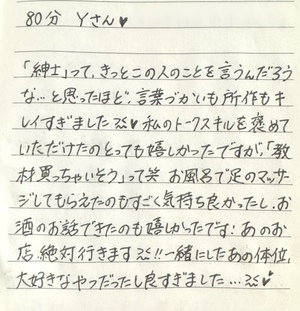 80分 Yさん♥
「紳士」って、きっとこの人のことを言うんだろう
な…と思ったほど、言葉づかいも所作もキ
レイすぎました 私のトークスキルを褒めて
いただけたのとっても嬉しかったですが、「教
材買っちゃいそう」って笑 お風呂で足のマッサ
ージしてもらえたのもすごく気持ち良かったし、お
酒のお話できたのも嬉しかったです！あのお
店、絶対行きます!! 一緒にしたあの体位、
大好きなやつだったし良すぎました…♥